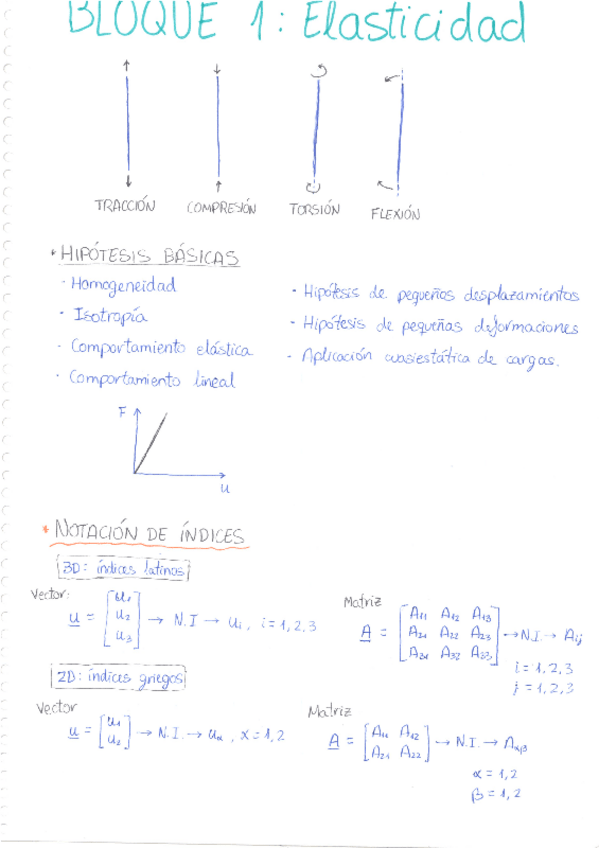 BLOQUE 1: Elasticidad
TRACCIÓN COMPRESIÓN TORSIÓN FLEXIÓN
* HIPÓTESIS BÁSICAS
· Homogeneidad
· Isotropía
· Comportamiento elástica
· Comportamiento lineal
· Hipótesis de pequeños desplazamientos
· Hipótesis de pequeñas deformaciones
· Aplicación cuasiestática de cargas.
F
u
* NOTACIÓN DE ÍNDICES
3D: índices latinos
Vector:
u = [u1 u2 u3] → N.I → ui, i = 1,2,3
Matriz
A = [A11 A12 A13
A21 A22 A23
A31 A32 A33] → N.I. → Aij
i = 1,2,3
j = 1,2,3
2D: índices griegos
Vector
u = [u1 u2] → N.I. → uα, α = 1,2
Matriz
A = [A11 A12
A21 A22] → N.I. → Aαβ
α = 1,2
β = 1,2